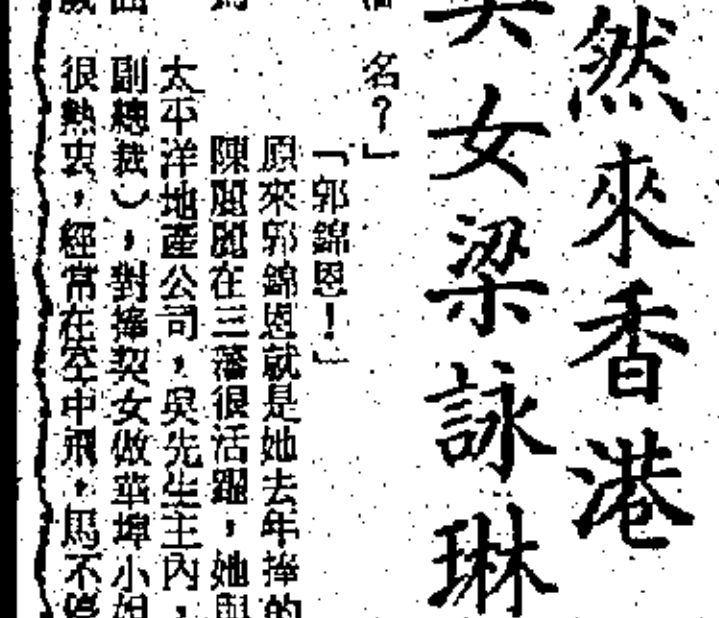 然來香港
契女梁詠琳
名？」
「郭錦恩！」
原來郭錦恩就是她去年捧的
陳麗麗在三藩很活躍，她與
太平洋地產公司，吳先生主內，
副總裁），對捧契女做華埠小姐
很熱衷，經常在空中飛，馬不停